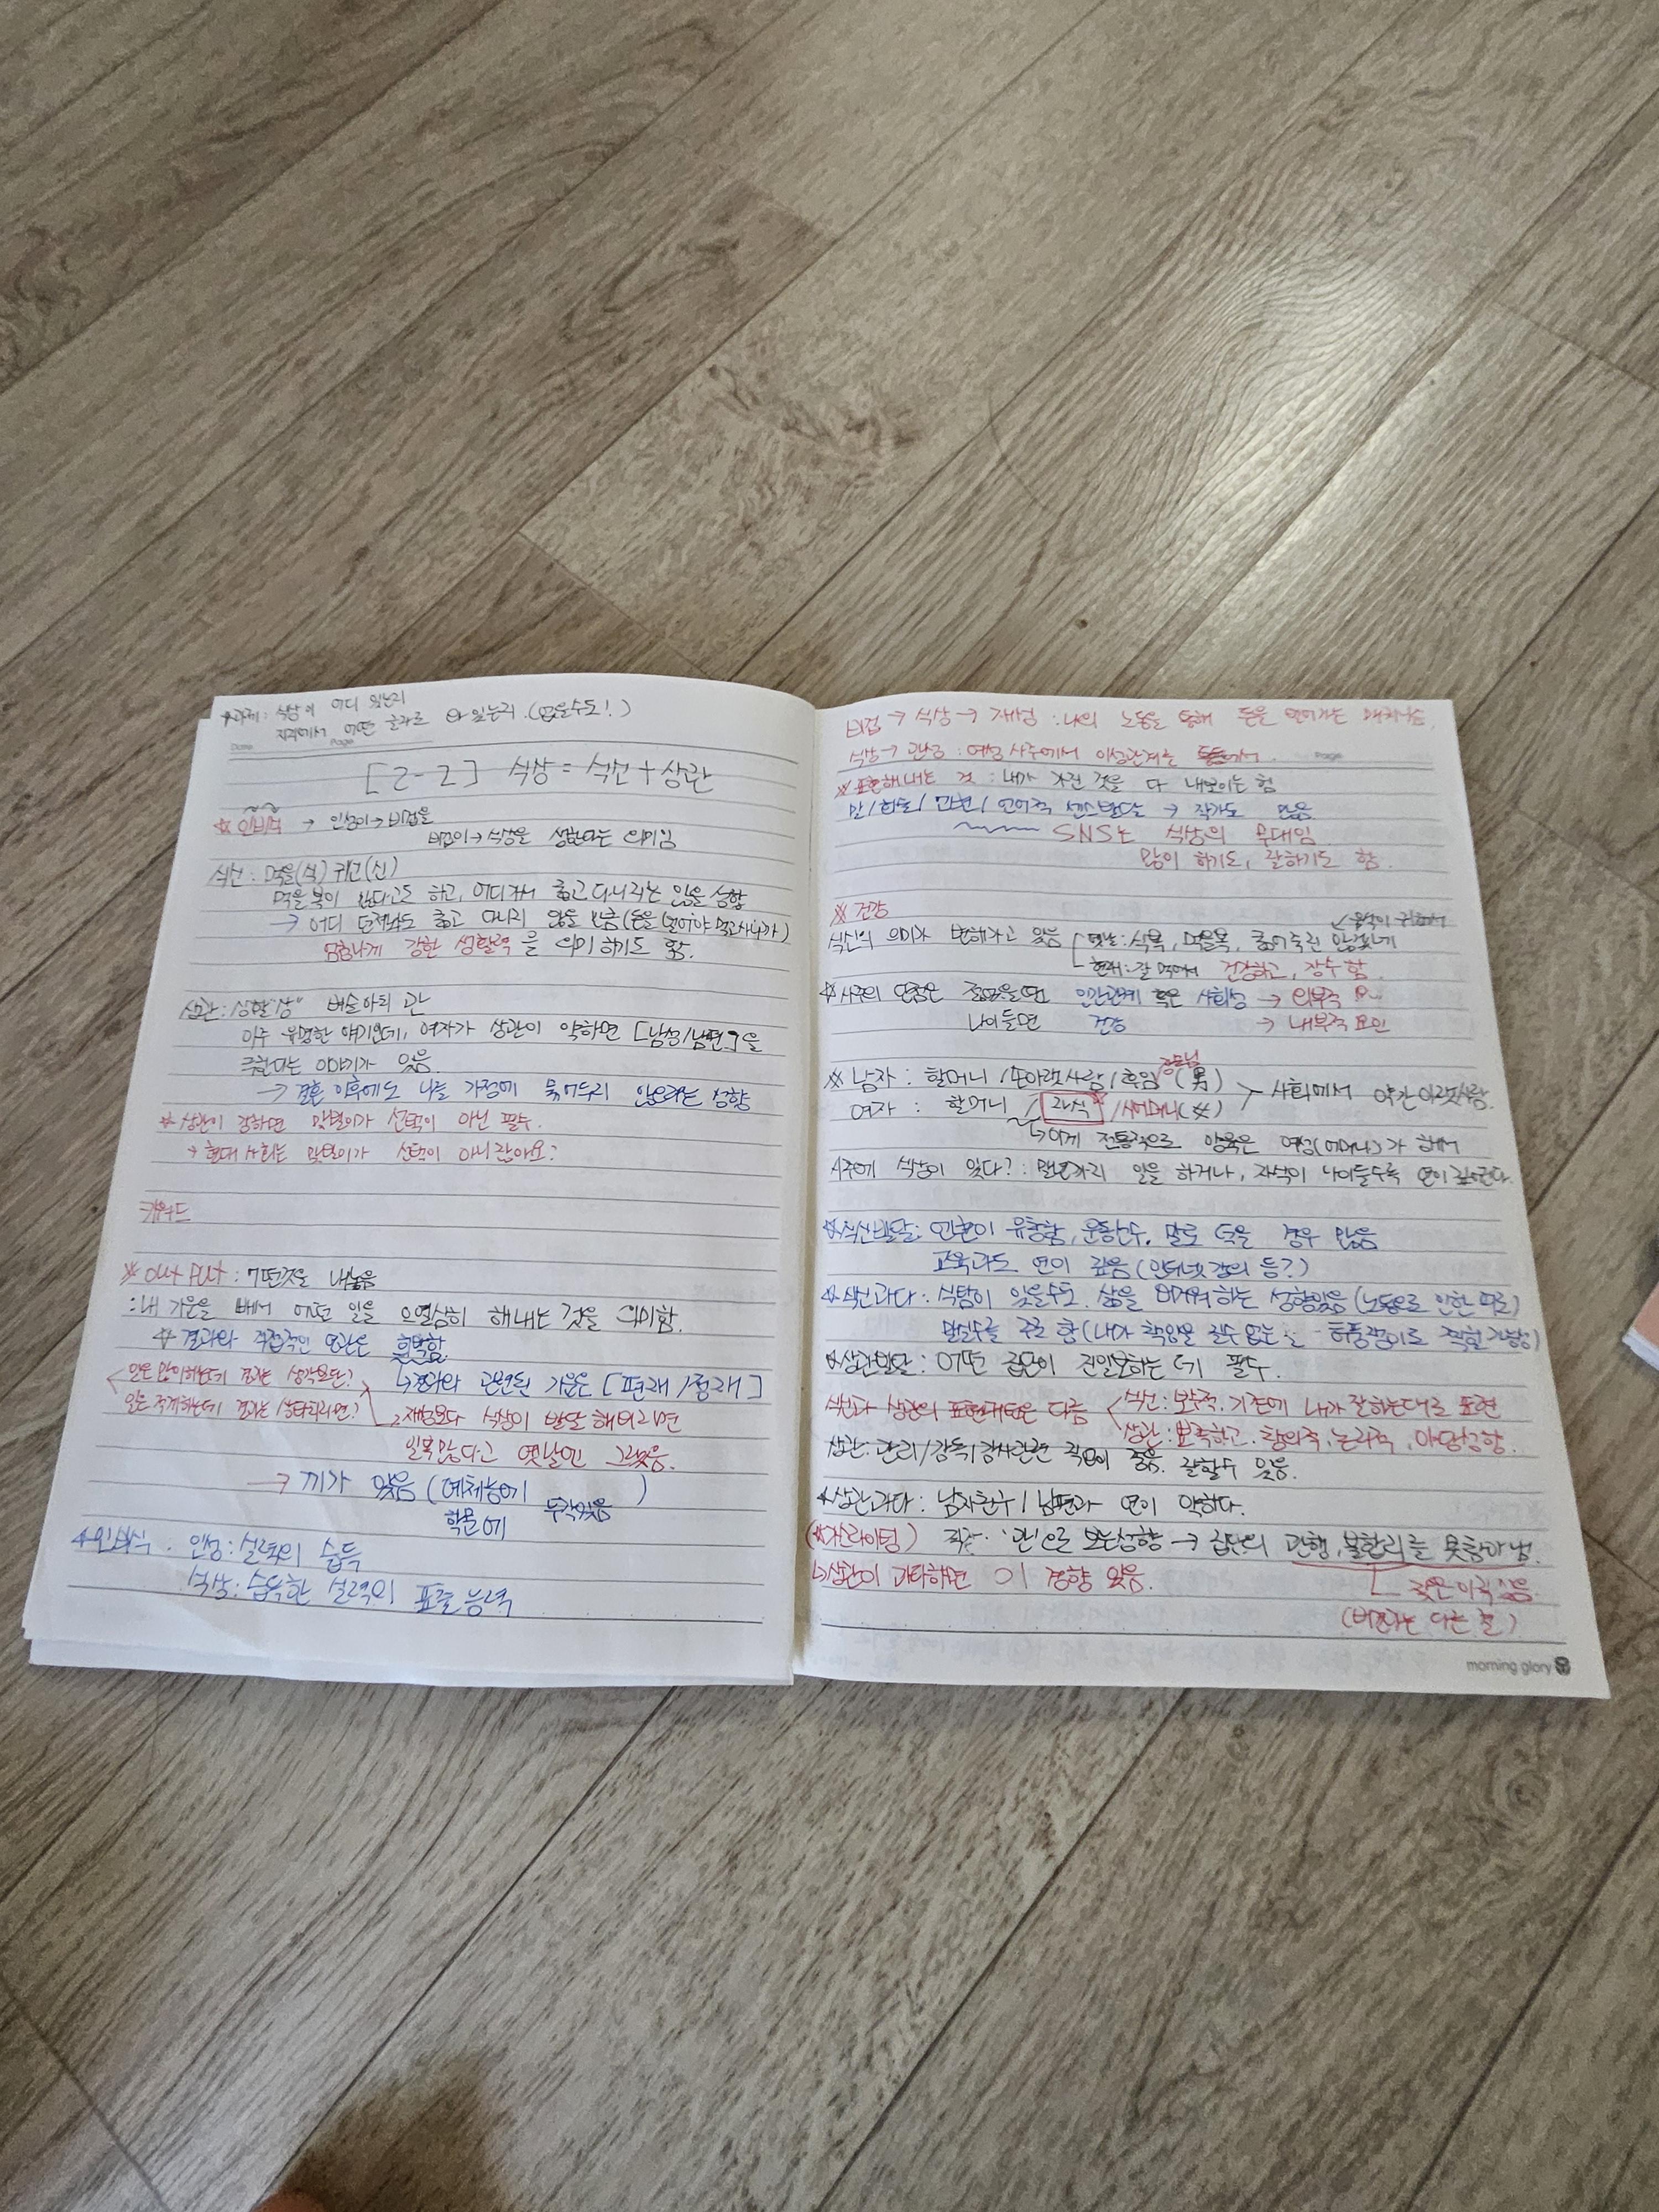 *과제: 식상이 어디 있는지
지지에서 어떤 글자로 와 있는지 (없을수도!)
Date Page
[2-2] 식상 = 식신 + 상관
* 인비식 → 인성이 → 비겁을
비겁이 → 식상을 생한다는 의미임
식신: 먹을(식) 귀신(신)
먹을 복이 많다고도 하고, 어디가서 굶고 다니지는 않을 성향
→ 어디 던져놔도 굶고 다니지 않을 만큼 (돈을 벌어야 먹고사니까)
엄청나게 강한 생활력을 의미하기도 함.
상관: 상할"상" 벼슬아치 관
아주 유명한 얘기인데, 여자가 상관이 강하면 [남성/남편]을
극한다는 이야기가 있음
→ 결혼 이후에도 나를 가정에 묶어두지 않으려는 성향
* 상관이 강하면 맞벌이가 선택이 아닌 필수.
→ 현대 사회는 맞벌이가 선택이 아니잖아요?
키워드
※ OUT PUT: 어떤것을 내놓음
: 내 기운을 빼서 어떤 일을 열심히 해내는 것을 의미함.
* 결과와 직접적인 연관은 희박함
일은 많이하는데 결과는 생각보단?
↳ 결과와 관련된 기운은 [편재/정재]
일은 적게하는데 결과는
재성보다 식상이 발달해버리면
일복많다고 옛날엔 그랬음.
→ 끼가 있음 (예체능에
학문에 두각있음)
* 인비식. 인성: 실력의 습득
식상: 습득한 실력의 표출 능력
비겁 → 식상 → 재성 : 나의 노동을 통해 돈을 얻어가는
식상 → 관성 : 여성 사주에서 이성관계를
Page
※ 표현해내는 것 : 내가 가진 것을 다 내보이는 힘
말/행동/표현/언어적 센스발달 → 작가도 많음
SNS는 식상의 무대임
많이 하기도, 잘하기도 함.
※ 건강
음식이 귀해서
식신의 의미가 변해가고 있음 옛날: 식복, 먹을복, 굶어죽진 않겠네
현재: 잘 먹어서 건강하고, 장수함
* 사주의 단점은 젊었을땐 인간관계 혹은 사회성 → 외부적
나이들면 건강 → 내부적 요인
장모님
※ 남자 : 할머니 / 손아랫사람 / 후임 (男) > 사회에서 약간 아랫사람.
여자 : 할머니 / 자식 / 시어머니(女)
↳ 이게 전통적으로 양육은 여성(어머니)가 해서
사주에 식상이 있다? : 말년까지 일을 하거나, 자식이 나이들수록 연이 깊어진다.
* 식신발달: 언변이 유창함, 운동선수, 말로 덕을 경우 많음
교육과도 연이 깊음 (인터넷 강의 등?)
* 식신과다: 식탐이 있을수도. 삶을 버거워하는 성향있음 (노동으로 인한 피로)
말실수를 주로 함 (내가 책임을 질수 없는 허풍쟁이로 찍힐 가능성)
* 상관발달: 어떤 집단이 진일보하는데 필수.
식신과 상관의 표현패턴은 다름 < 식신: 보수적. 기존에 내가 잘하는대로 표현
상관: 창의적, 논리적,
상관: 관리/감독/감사관련 직업이 좋음. 잘할수 있음.
* 상관과다: 남자친구/남편과 연이 약하다.
(*가스라이팅) 직장을 '판'으로 보는성향 → 집단의 관행, 불합리를 못참아냄.
↳ 상관이 과다하면 이 경향 있음.
잦은 이직 있음
(비겁과는 다른 점)
morning glory